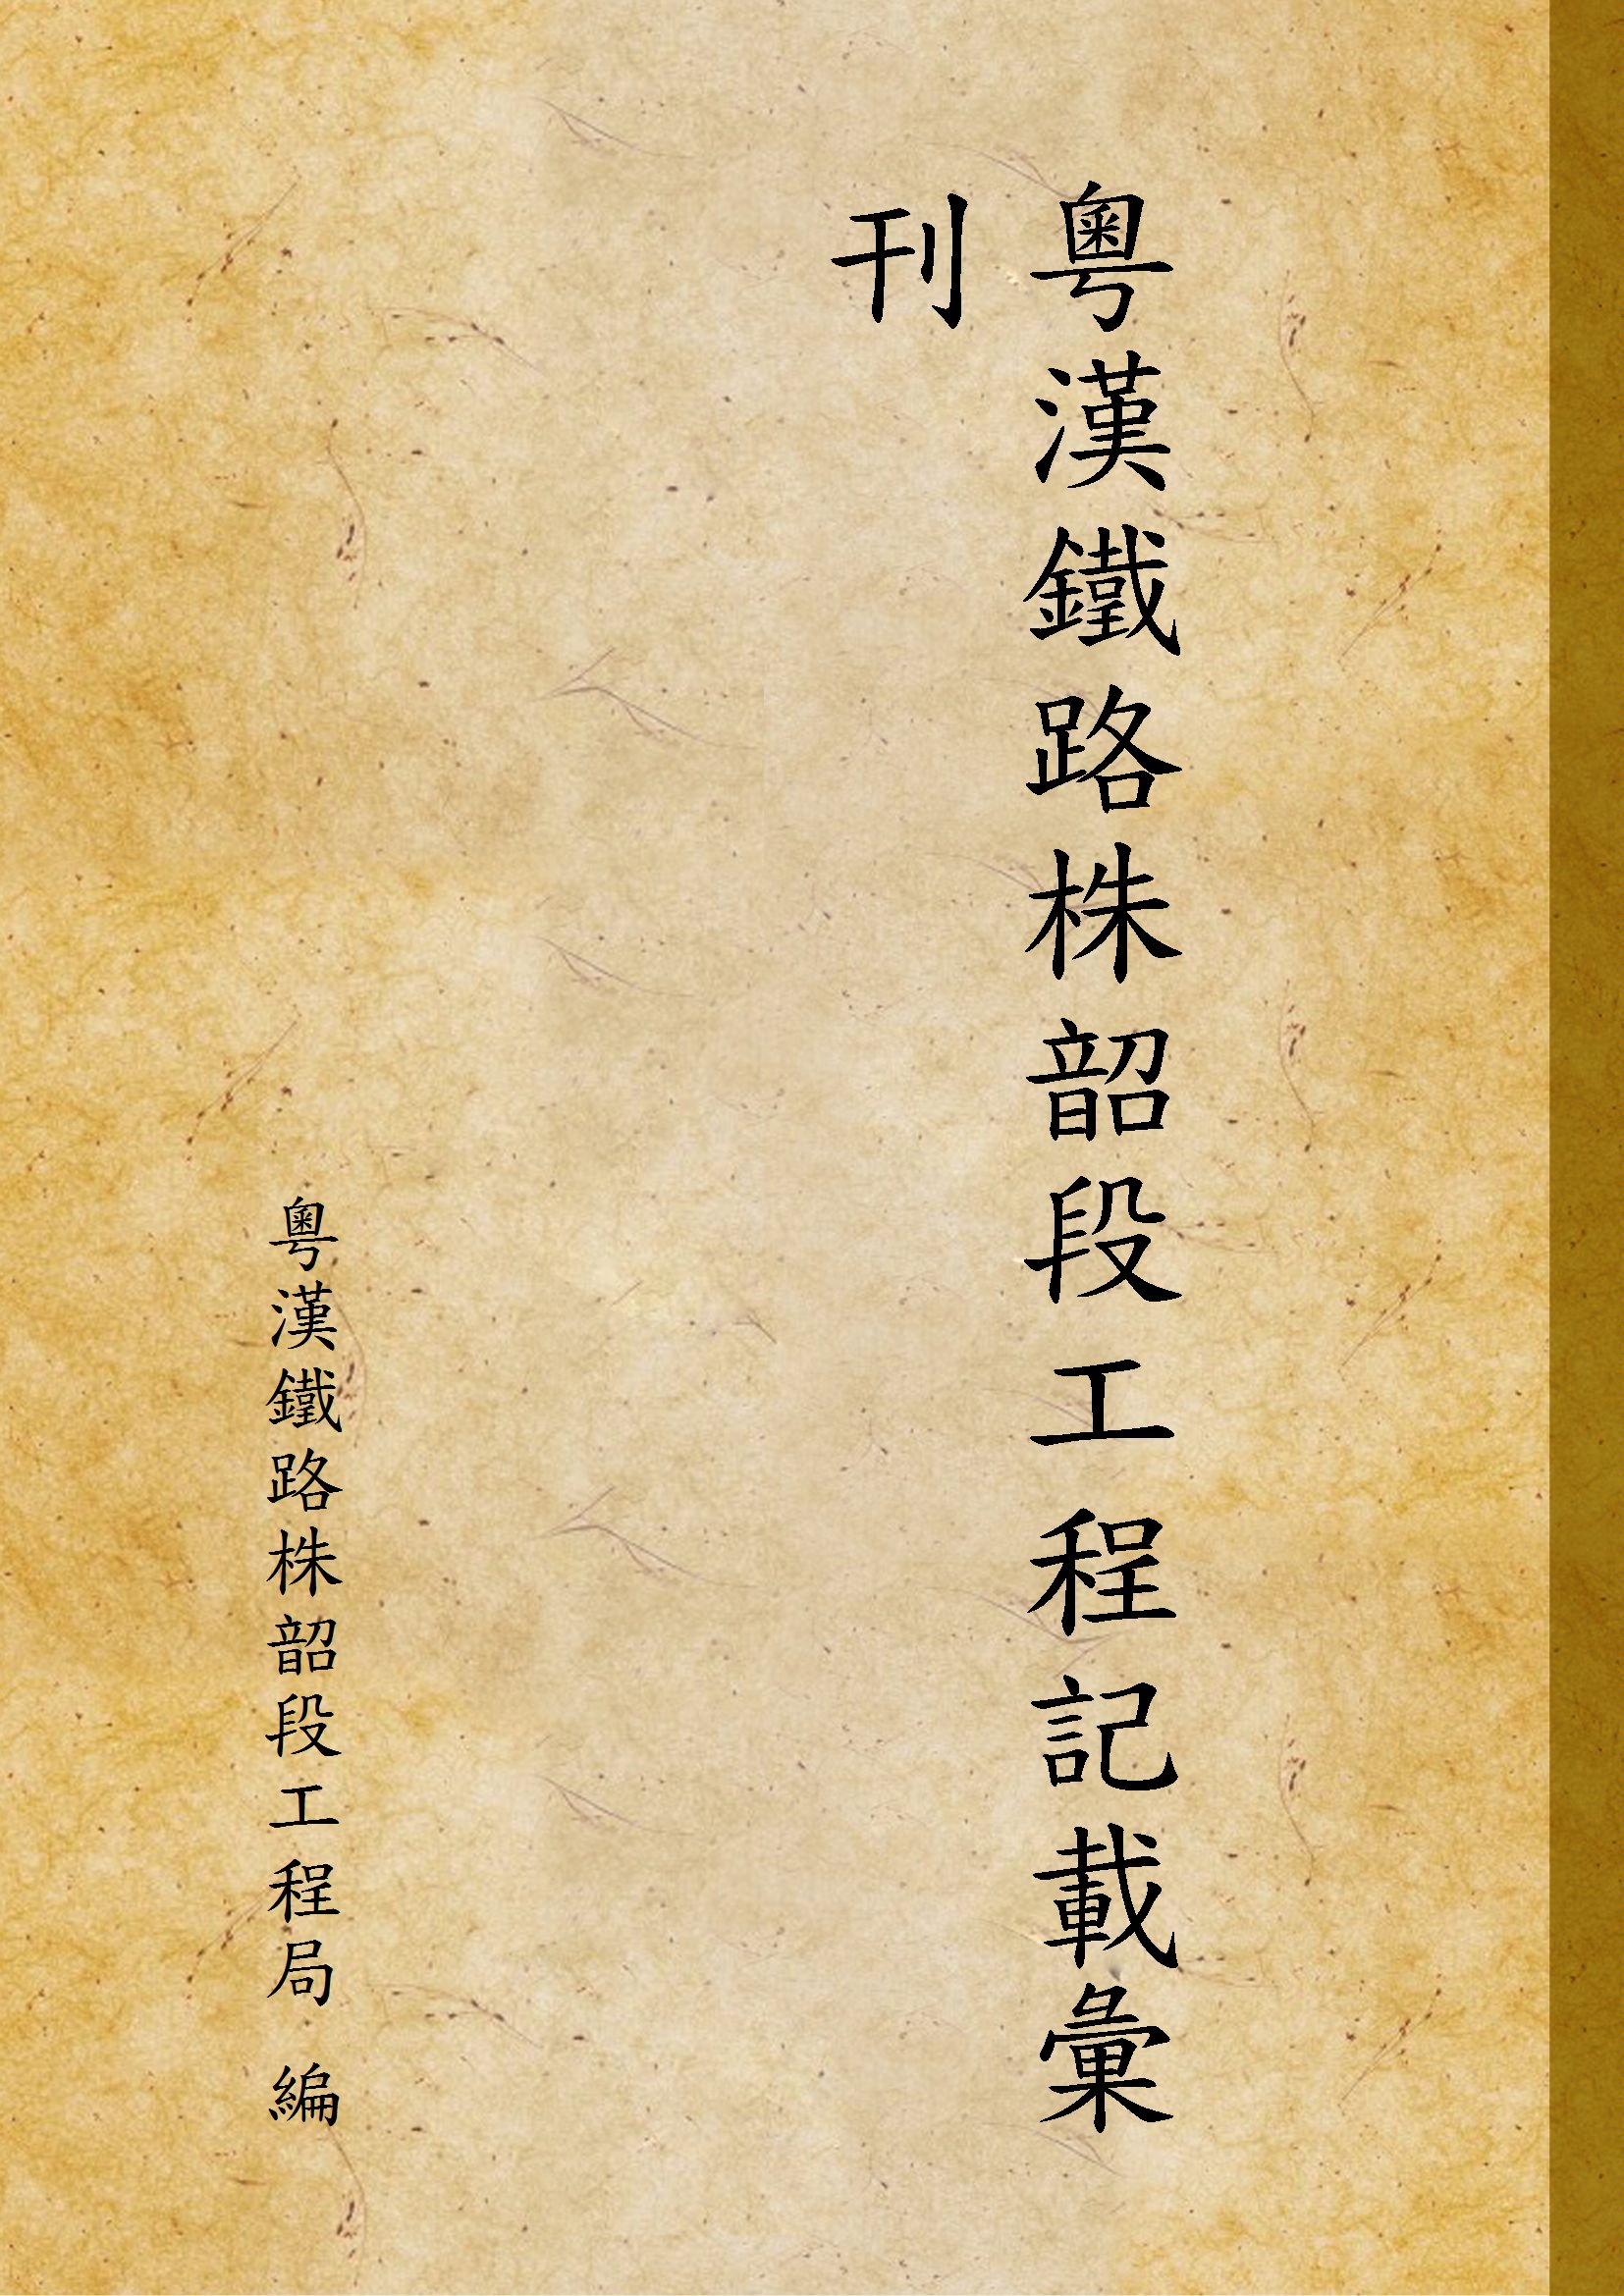 粵漢鐵路株韶段工程記載彙
刊
粵漢鐵路株韶段工程局 編